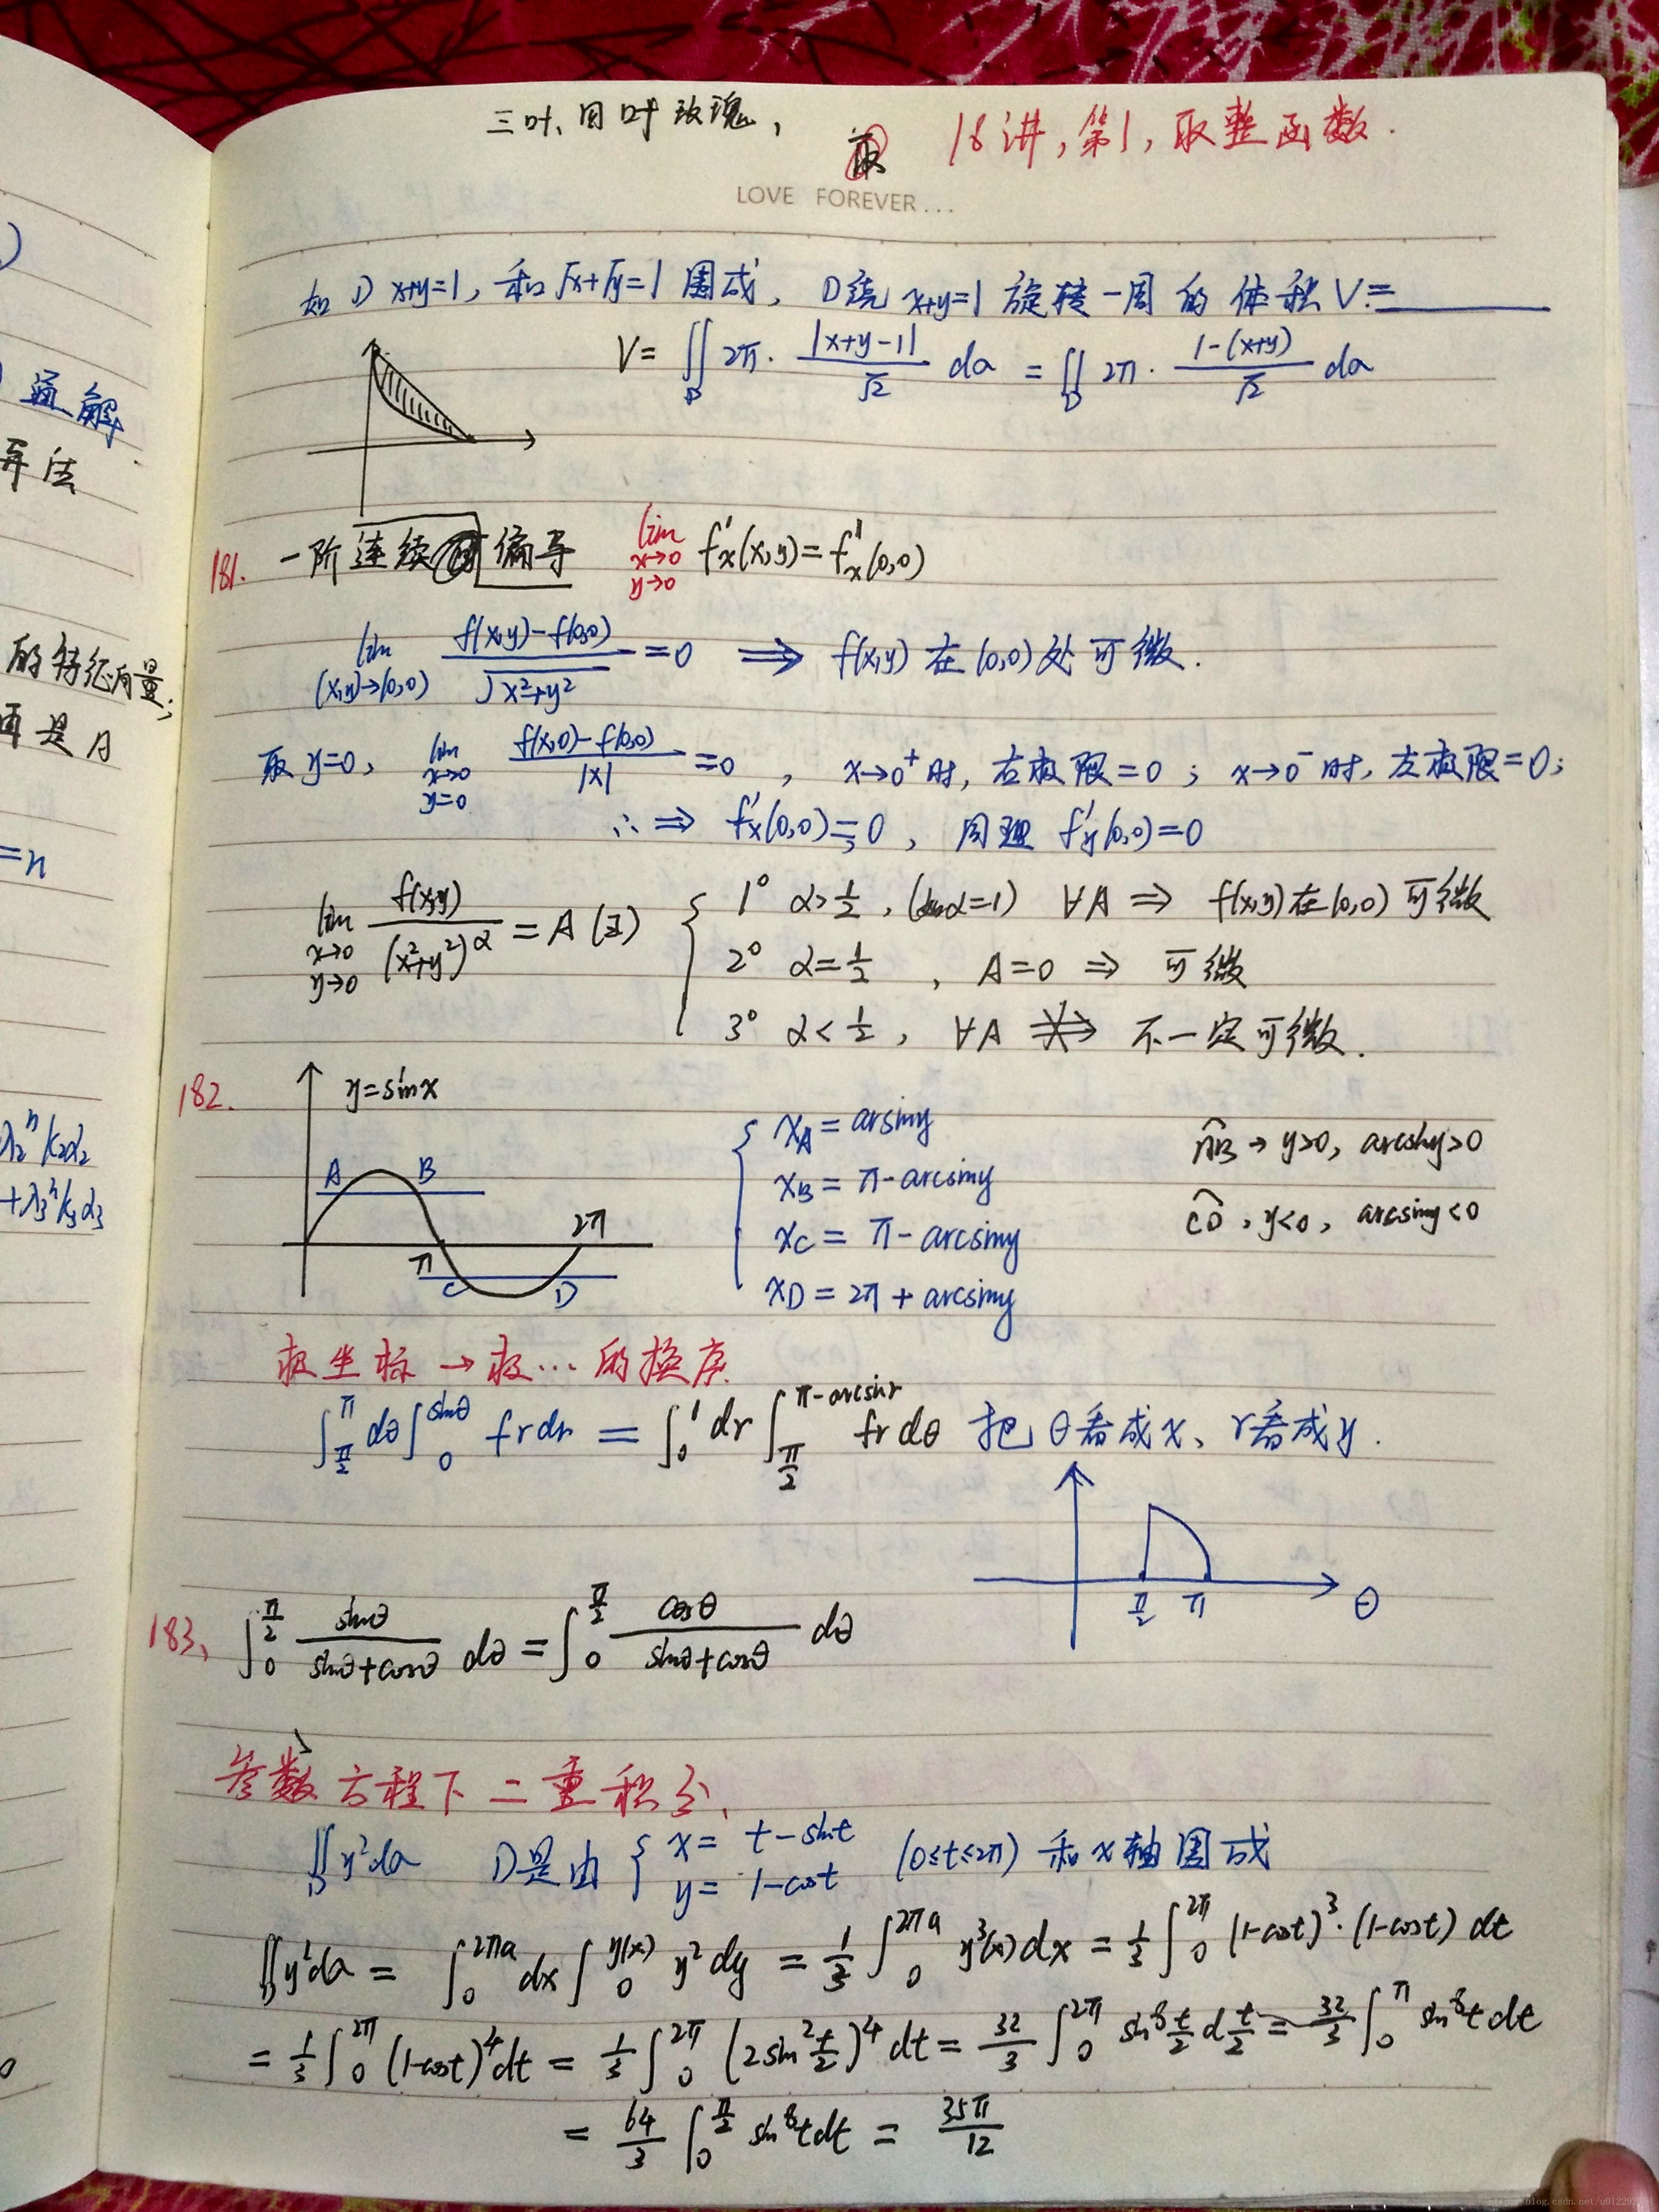 三叶、四叶玫瑰,
18讲,第1,取整函数.
LOVE FOREVER...
如 D x+y=1, 和√x+√y=1 围成, D绕 x+y=1 旋转一周的体积 V=______
V= ∬_D 2π· |x+y-1|/√2 da = ∬_D 2π· (1-(x+y))/√2 da
181. 一阶连续偏导 lim_{x→0, y→0} f'x(x,y)=f'x(0,0)
lim_{(x,y)→(0,0)} (f(x,y)-f(0,0))/√(x²+y²) =0 ⟹ f(x,y) 在 (0,0) 处可微.
取 y=0, lim_{x→0, y=0} (f(x,0)-f(0,0))/|x| =0, x→0⁺时, 右极限=0; x→0⁻时, 左极限=0;
∴ ⟹ f'x(0,0)=0, 同理 f'y(0,0)=0
lim_{x→0, y→0} f(x,y)/(x²+y²)^α = A (∃)
{ 1° α>1/2, (如α=1) ∀A ⟹ f(x,y)在(0,0)可微
2° α=1/2, A=0 ⟹ 可微
3° α<1/2, ∀A ⇏ 不一定可微.
182. y=sinx
A B
π 2π
C D
{ x_A = arsiny
x_B = π-arcsiny
x_C = π-arcsiny
x_D = 2π+arcsiny
AB → y>0, arcsiny>0
CD, y<0, arcsiny<0
极坐标→极…的换序.
∫_{π/2}^{π} dθ ∫_0^{sinθ} f r dr = ∫_0^1 dr ∫_{π/2}^{π-arcsinr} f r dθ 把θ看成x、r看成y.
π/2 π θ
183、 ∫_0^{π/2} sinθ/(sinθ+cosθ) dθ = ∫_0^{π/2} cosθ/(sinθ+cosθ) dθ
参数方程下二重积分、
∬_D y²da D是由 { x= t-sint y= 1-cost (0≤t≤2π) 和x轴围成
∬_D y²da = ∫_0^{2πa} dx ∫_0^{y(x)} y²dy = 1/3 ∫_0^{2πa} y³(x)dx = 1/3 ∫_0^{2π} (1-cost)³·(1-cost) dt
= 1/3 ∫_0^{2π} (1-cost)⁴dt = 1/3 ∫_0^{2π} (2sin² t/2)⁴ dt = 32/3 ∫_0^{2π} sin⁸ t/2 d t/2 = 32/3 ∫_0^π sin⁸t dt
= 64/3 ∫_0^{π/2} sin⁸t dt = 35π/12
)
通解
算法
的特征向量;
再是A
=n
λ₂ⁿk₂α₂
+λ₃ⁿk₃α₃